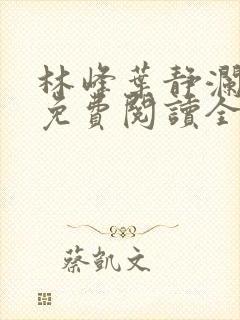 林峰葉静瀾
免費閱讀全
蔡凱文